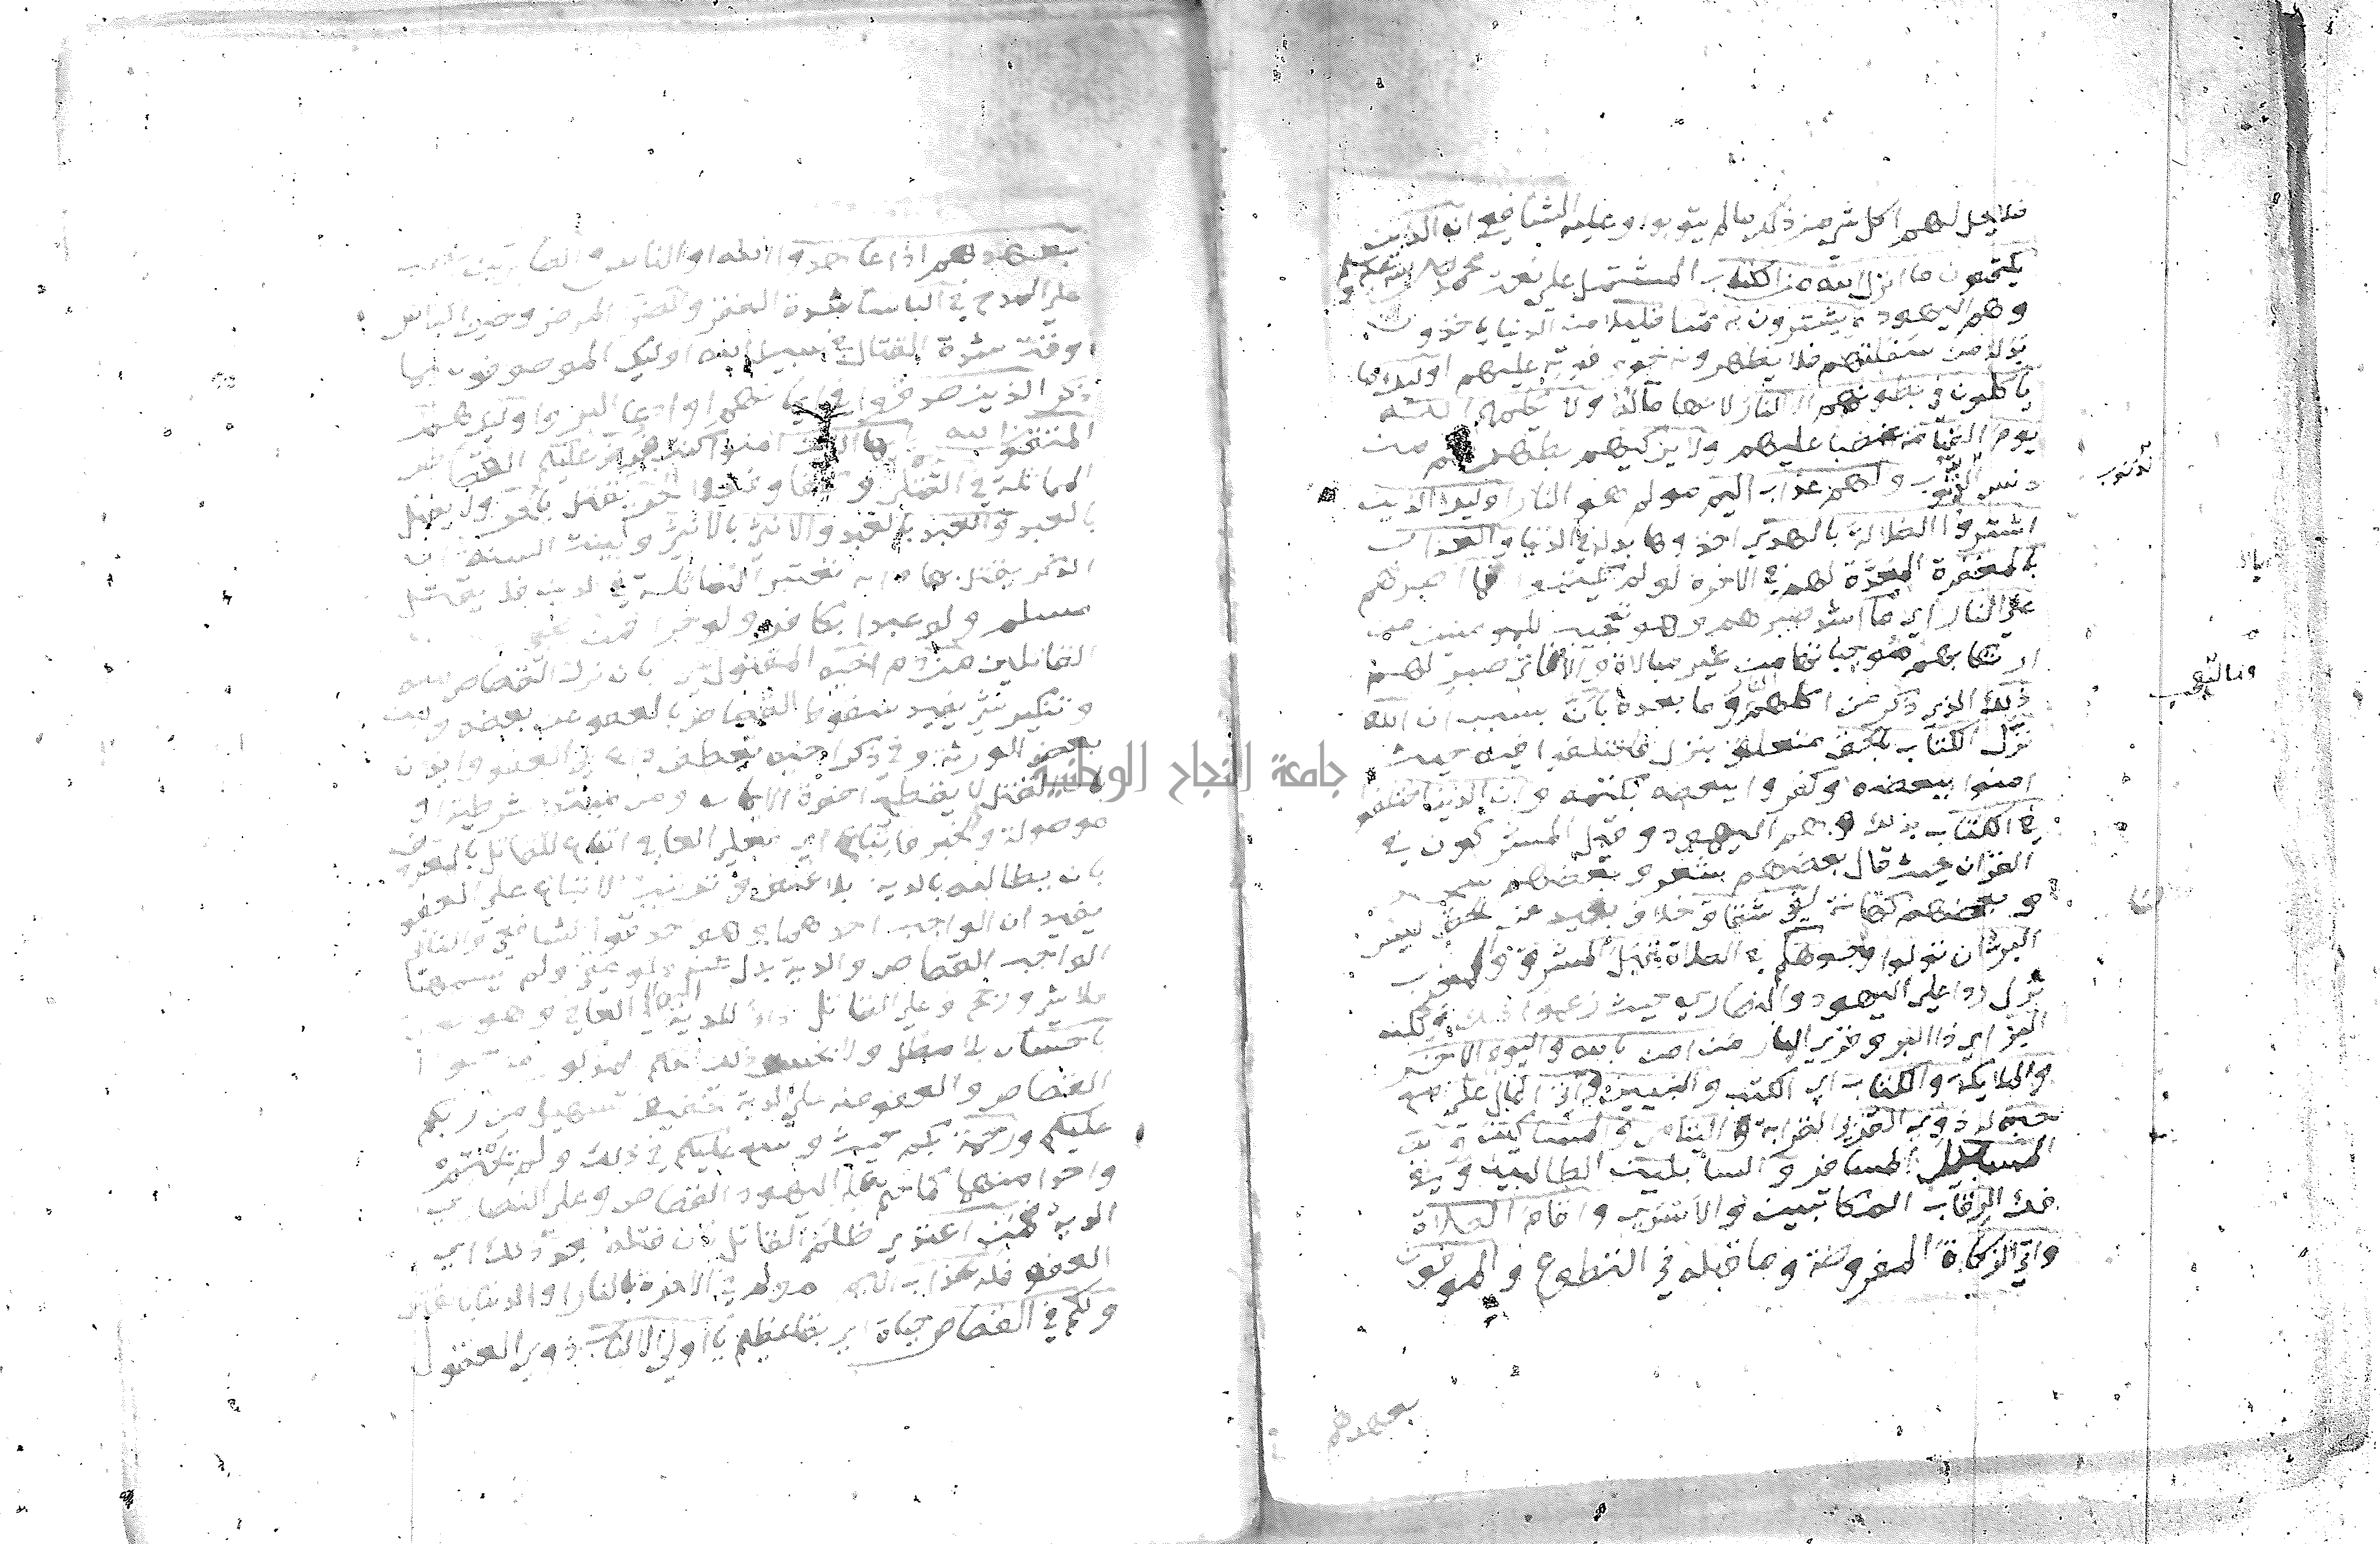 فلا يحل لهم اكل شي من ذكر ما لم يتوبوا وعليه الشافعي ان الذين
يكتمون ما انزل الله من الكتاب المشتمل على نعت محمد
وهم اليهود يشترون به ثمنا قليلا من الدنيا ياخذون
بدله من سفلتهم فلا يظهرونه خوف فوته عليهم اوليك ما
ياكلون في بطونهم الا النار لانها مالهم ولا يكلمهم الله
يوم القيامة غضبا عليهم ولا يزكيهم يطهرهم من
دنس الذنوب ولهم عذاب اليم مولم هو النار اوليك الذين
اشتروا الضلالة بالهدى اخذوها بدله في الدنيا والعذاب
بالمغفرة المعدة لهم في الاخرة لو لم يكتموا فما اصبرهم
على النار اي ما اشد صبرهم وهو تعجيب للمومنين من
ارتكابهم موجباتها من غير مبالاة والا فاي صبر لهم
ذلك الذي ذكر من اكلهم وما بعده بان بسبب ان الله
نزل الكتاب بالحق متعلق بنزل فاختلفوا فيه حيث
امنوا ببعضه وكفروا ببعضه بكتمه وان الذين اختلفوا
في الكتاب بذلك وهم اليهود وقيل المشركون في
القران حيث قال بعضهم شعر وبعضهم سحر
وبعضهم كهانة لفي شقاق خلاف بعيد عن الحق ليس
البر ان تولوا وجوهكم في الصلاة قبل المشرق والمغرب
نزل ردا على اليهود والنصاري حيث زعموا ذلك ولكن
البر اي ذا البر وقري البار من امن بالله واليوم الاخر
والملايكة والكتاب اي الكتب والنبيين واتى المال على مع
حبه له ذوي القربى القرابة واليتامى والمساكين وابن
السبيل المسافر والسايلين الطالبين وفي
فك الرقاب المكاتبين والاسرى واقام الصلاة
واتى الزكاة المفروضة وما قبله في التطوع والموفون
بعهدهم
الذنوب
بعهدهم اذا عاهدوا الله او الناس والصابرين نصب
على المدح في الباسا شدة الفقر والضرا المرض وحين الباس
وقت شدة القتال في سبيل الله اوليك الموصوفون بما
ذكر الذين صدقوا في ايمانهم او ادعا البر واوليك هم
المتقون الله يا ايها الذين امنوا كتب فرض عليكم القصاص
المماثلة في القتلى وصفا وفعلا الحر يقتل بالحر ولا يقتل
بالعبد والعبد بالعبد والانثى بالانثى وبينت السنة ان
الذكر يقتل بها وانه تعتبر المماثلة في الدين فلا يقتل
مسلم ولو عبدا بكافر ولو حرا فمن عفي
القاتلين من دم اخيه المقتول شي بان ترك القصاص منه
وتنكير شي يفيد سقوط القصاص بالعفو عن بعضه ومن
بعض الورثة وفي ذكر اخيه تعطف داع الى العفو وايذان
بان القتل لا يقطع اخوة الايمان ومن مبتدا شرطية او
موصولة والخبر فاتباع اي فعلى العافي اتباع للقاتل بالمعروف
بان يطالبه بالدية بلا عنف وترتيب الاتباع على العفو
يفيد ان الواجب احدهما وهو احد قولي الشافعي والثاني
الواجب القصاص والدية بدل عنه فلو عفي ولم يسمها
فلا شي ورجح وعلى القاتل ادا للدية اليه الى العافي وهو
باحسان بلا مطل ولا بخس ذلك الحكم المذكور من
القصاص والعفو عنه على الدية تخفيف تسهيل من ربكم
عليكم ورحمة بكم حيث وسع عليكم في ذلك ولم يحتم
واحدا منهما كما حتم على اليهود القصاص وعلى النصاري
الدية فمن اعتدى ظلم القاتل بان قتله بعد ذلك اي
العفو فله عذاب اليم مولم في الاخرة بالنار او الدنيا بالقتل
ولكم في القصاص حياة اي بقا عظيم يا اولي الالباب ذوي العقول
جامعة النجاح الوطنية